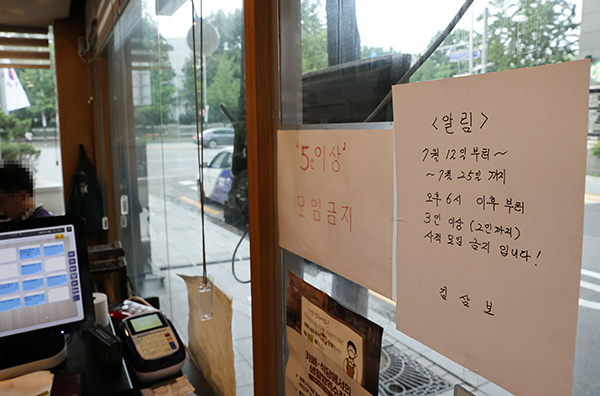 '5인이상'
모임금지
<알림>
7월 12일 부터~
~7월 25일 까지
오후 6시 이후 부터
3인 이상 (2인까지)
사적 모임 금지 입니다!
김삼보
카페·식당에서의